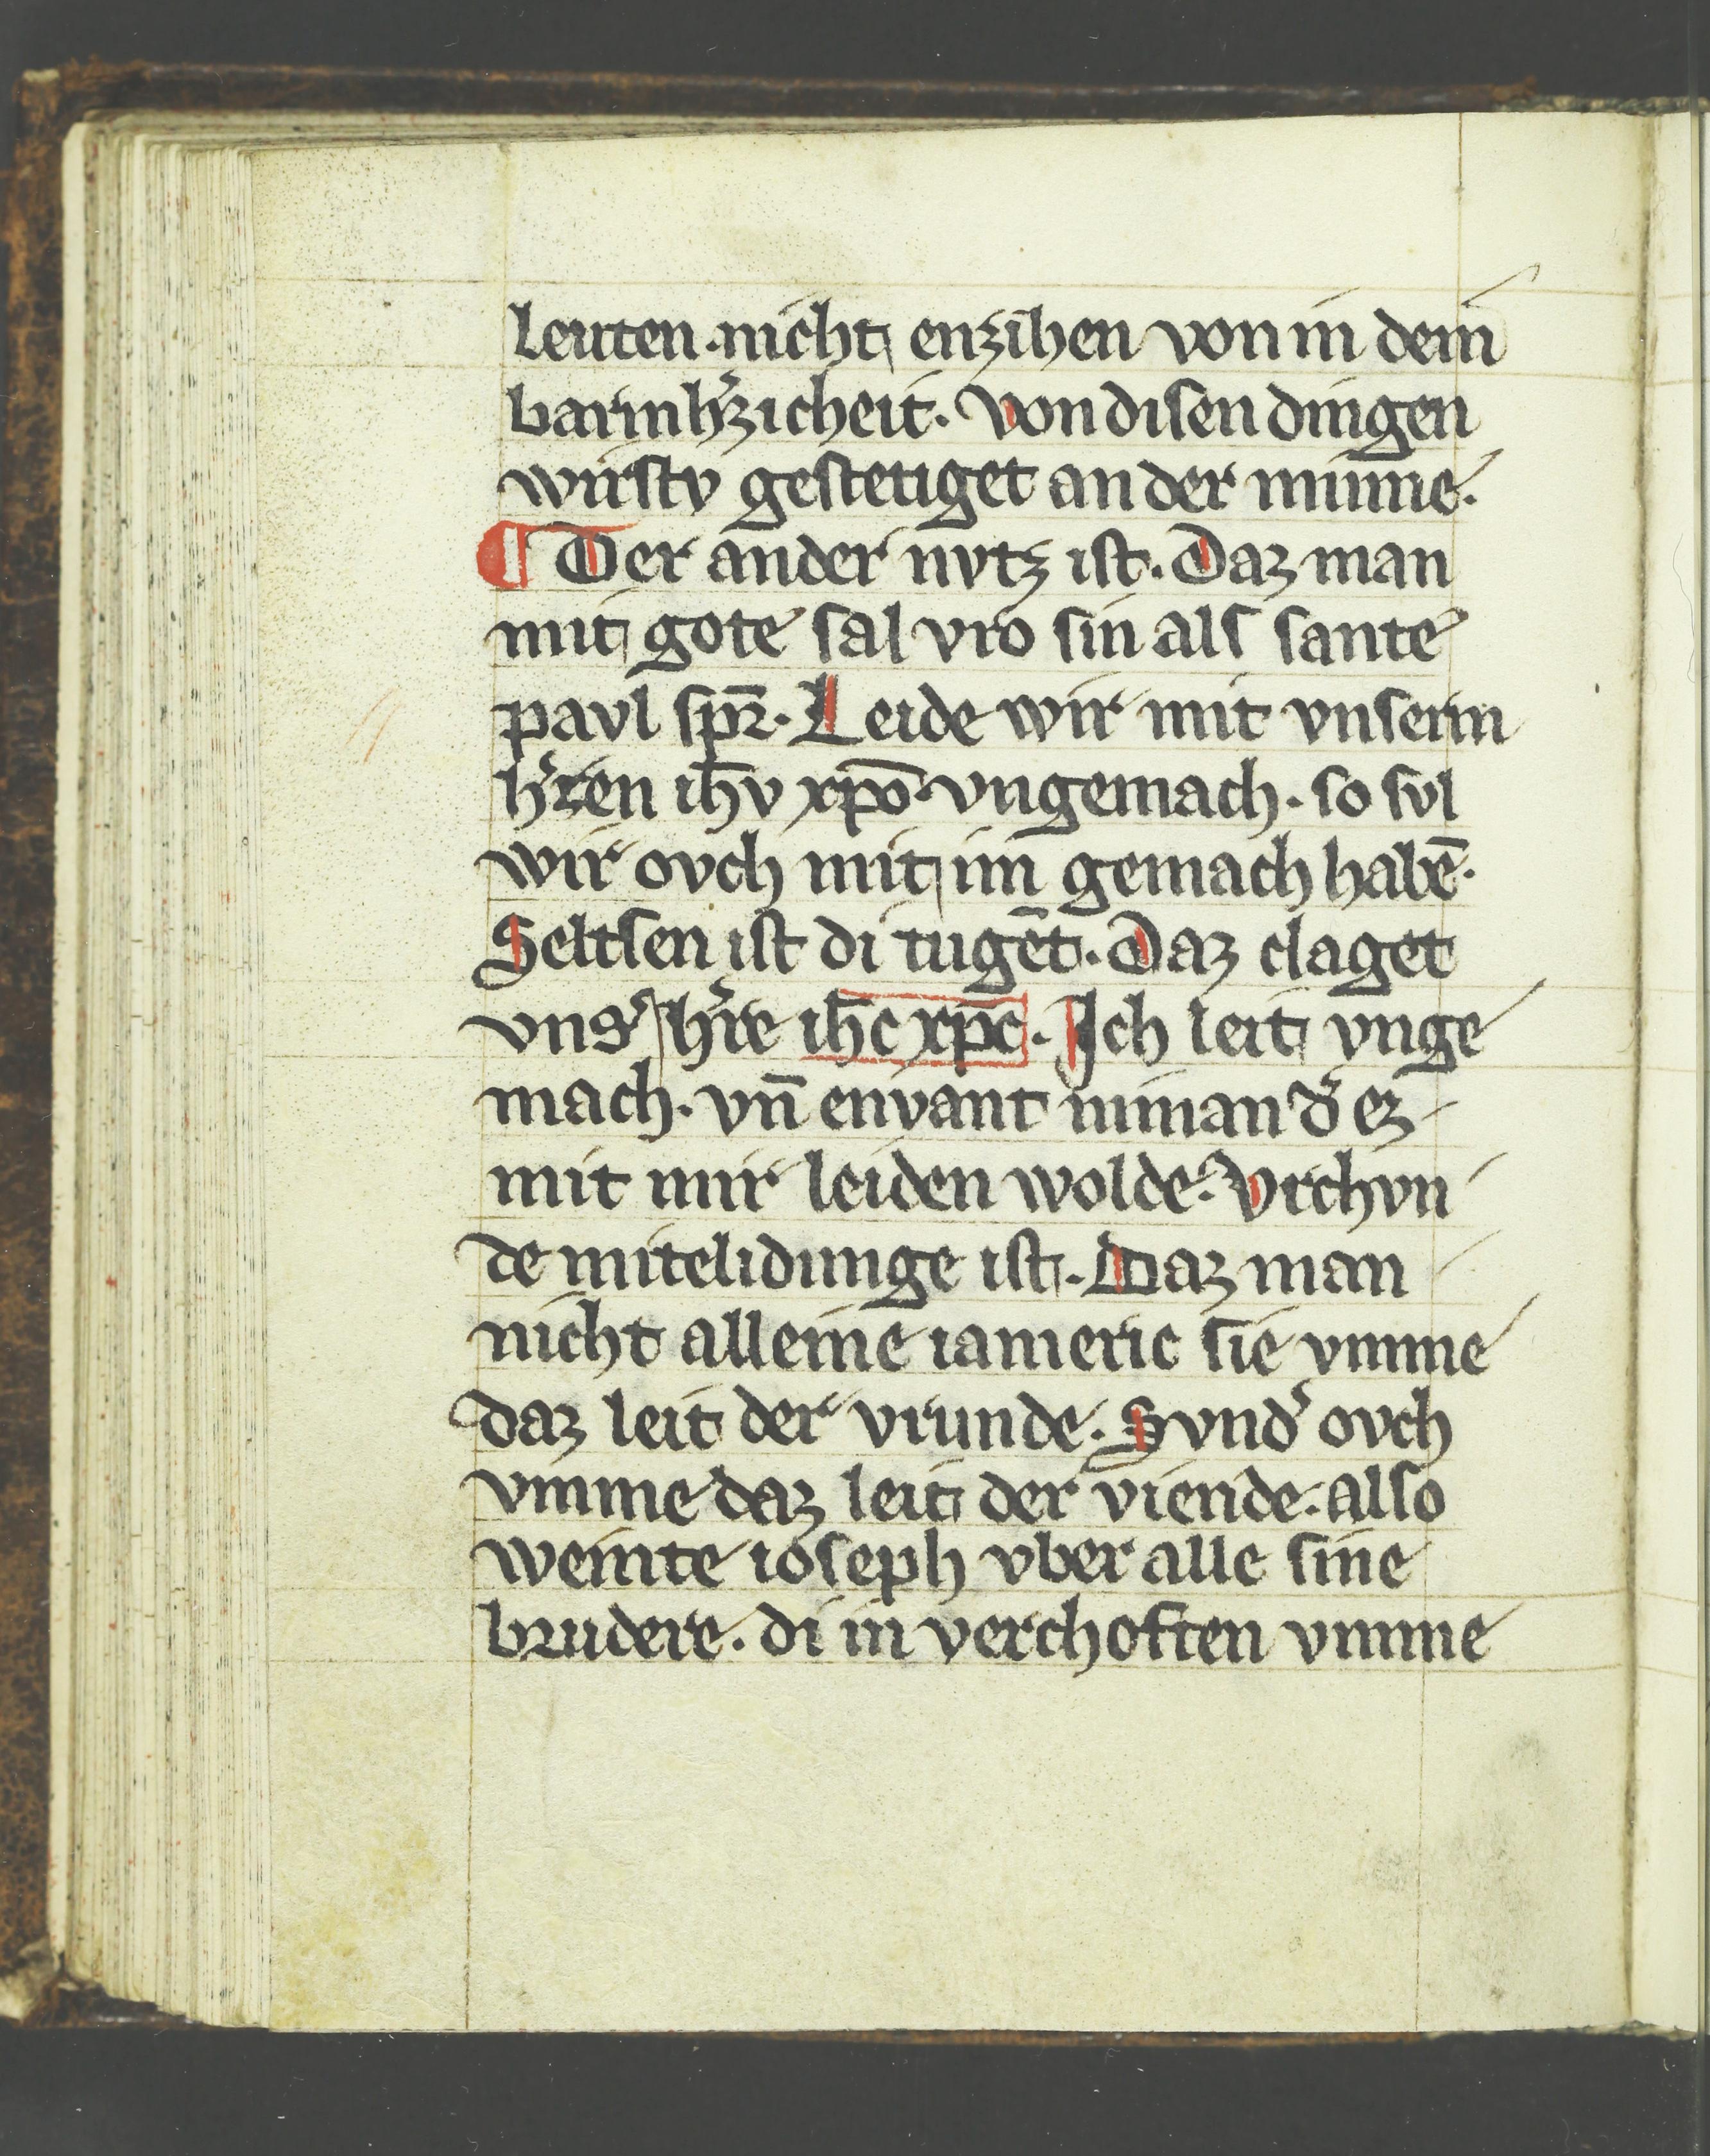 leuten·nicht enzihen von in dein
barmh͛zicheit. Von disen dingen
wirstv gestetiget an der minne.
¶ Der ander nvtz ist. Daz man
mit gote sal vro sin als sante
pavl spꝛ̄. Leide wir mit vnserm
h͛ren ih̄v xp̄o. vngemach. so svl
wir ovch mit im gemach habē.
Seltsen ist di tugēt. Daz claget
vns͛ h͛re ih̄c xp̄c. Ich leit vnge
mach. vn̄ envant niman d͛ ez
mit mir leiden wolde. Vrchvn
de mitelidunge ist. Daz man
nicht alleine iameric sie vmme
daz leit der vrunde. Svnd͛ ovch
vmme daz leit der viende. also
weinte ioseph vber alle sine
brudere. di in verchoften vmme